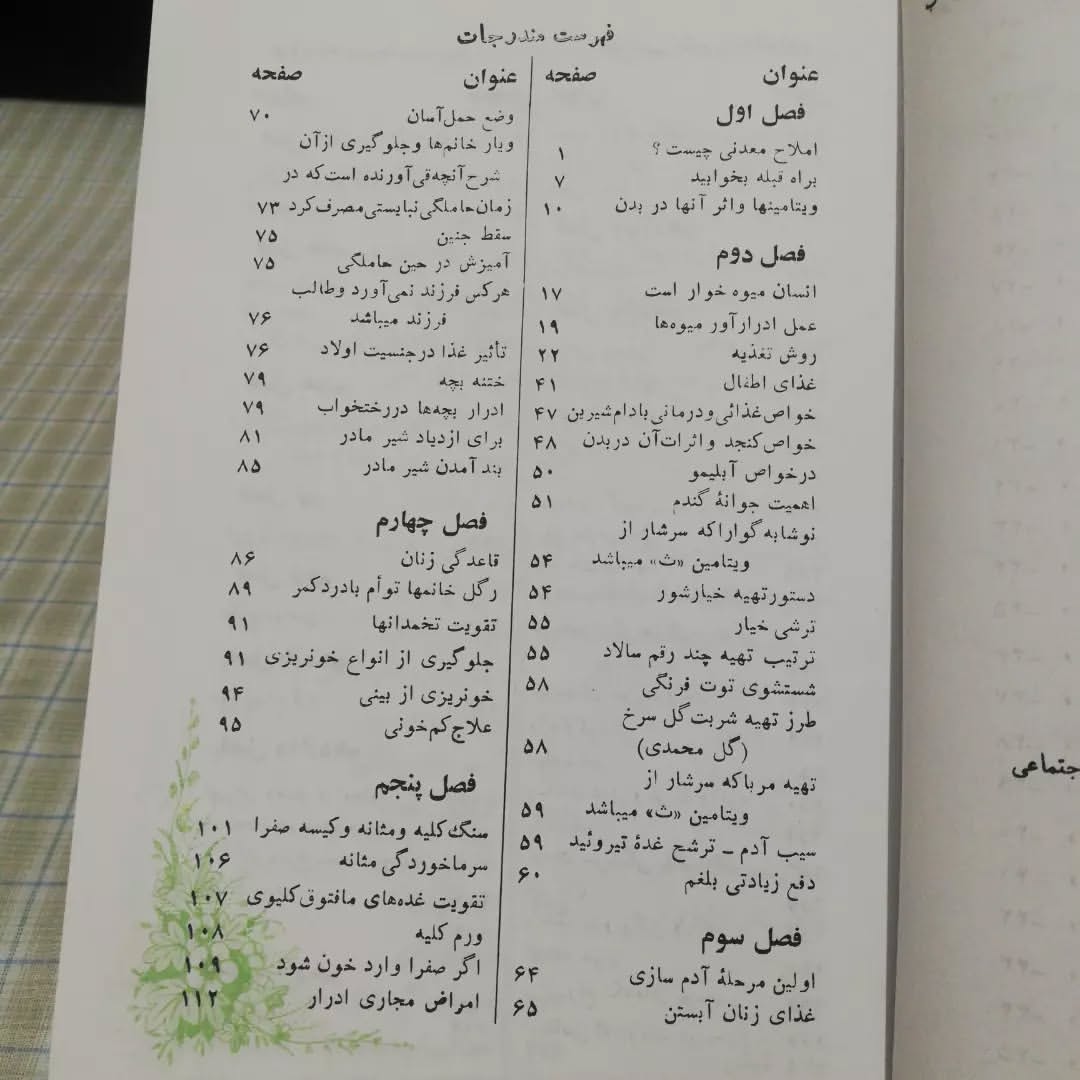 فهرست مندرجات
عنوان صفحه
فصل اول
املاح معدنی چیست ؟ ۱
براه قبله بخوابید ۷
ویتامینها واثر آنها در بدن ۱۰
فصل دوم
انسان میوه خوار است ۱۷
عمل ادرارآور میوه‌ها ۱۹
روش تغذیه ۲۲
غذای اطفال ۴۱
خواص‌غذائی‌ودرمانی‌بادام‌شیرین ۴۷
خواص‌کنجد واثرات‌آن دربدن ۴۸
درخواص آبلیمو ۵۰
اهمیت جوانهٔ گندم ۵۱
نوشابه‌گواراکه سرشار از
ویتامین «ث» میباشد ۵۴
دستورتهیه خیارشور ۵۴
ترشی خیار ۵۵
ترتیب تهیه چند رقم سالاد ۵۵
شستشوی توت فرنگی ۵۸
طرز تهیه شربت‌گل سرخ
(گل محمدی) ۵۸
تهیه مرباکه سرشار از
ویتامین «ث» میباشد ۵۹
سیب آدم ـ ترشح غدهٔ تیروئید ۵۹
دفع زیادتی بلغم ۶۰
فصل سوم
اولین مرحلهٔ آدم سازی ۶۴
غذای زنان آبستن ۶۵
عنوان صفحه
وضع حمل‌آسان ۷۰
ویار خانم‌ها وجلوگیری ازآن
شرح‌آنچه‌قی‌آورنده است‌که در
زمان‌حاملگی‌نبایستی‌مصرف‌کرد ۷۳
سقط جنین ۷۵
آمیزش در حین حاملگی ۷۵
هرکس فرزند نمی‌آورد وطالب
فرزند میباشد ۷۶
تأثیر غذا درجنسیت اولاد ۷۶
ختنه بچه ۷۹
ادرار بچه‌ها دررختخواب ۷۹
برای ازدیاد شیر مادر ۸۱
بندآمدن شیر مادر ۸۵
فصل چهارم
قاعدگی زنان ۸۶
رگل خانمها توأم بادردکمر ۸۹
تقویت تخمدانها ۹۱
جلوگیری از انواع خونریزی ۹۱
خونریزی از بینی ۹۴
علاج‌کم‌خونی ۹۵
فصل پنجم
سنگ‌کلیه ومثانه وکیسه صفرا ۱۰۱
سرماخوردگی مثانه ۱۰۶
تقویت غده‌های مافتوق‌کلیوی ۱۰۷
ورم کلیه ۱۰۸
اگر صفرا وارد خون شود ۱۰۹
امراض مجاری ادرار ۱۱۲
جتماعی